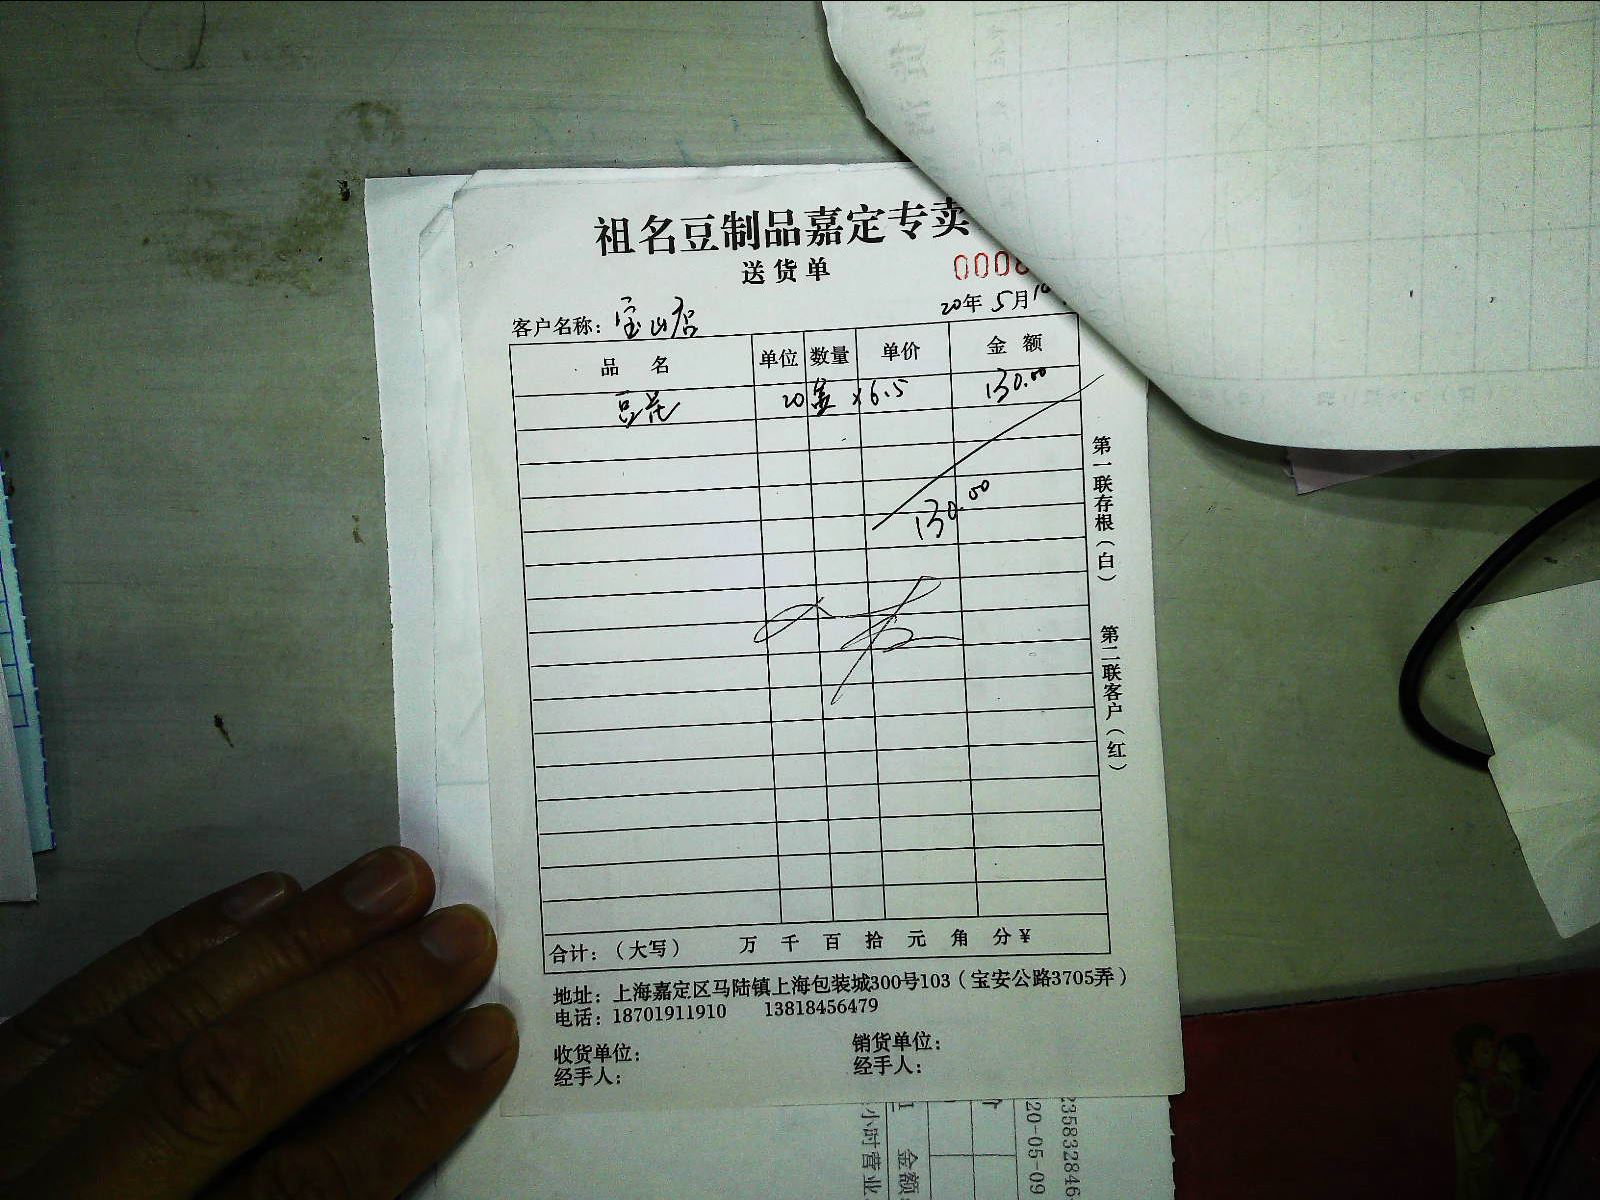 祖名豆制品嘉定专卖
送货单
000
客户名称：宝山店 20年5月10
品名 单位 数量 单价 金额
豆花 20盒 ×6.5 130.00
130.00
第一联存根（白）
第二联客户（红）
合计：（大写） 万 千 百 拾 元 角 分 ¥
地址：上海嘉定区马陆镇上海包装城300号103（宝安公路3705弄）
电话：18701911910 13818456479
收货单位： 销货单位：
经手人： 经手人：
小时营业
金额
20-05-09
235832846